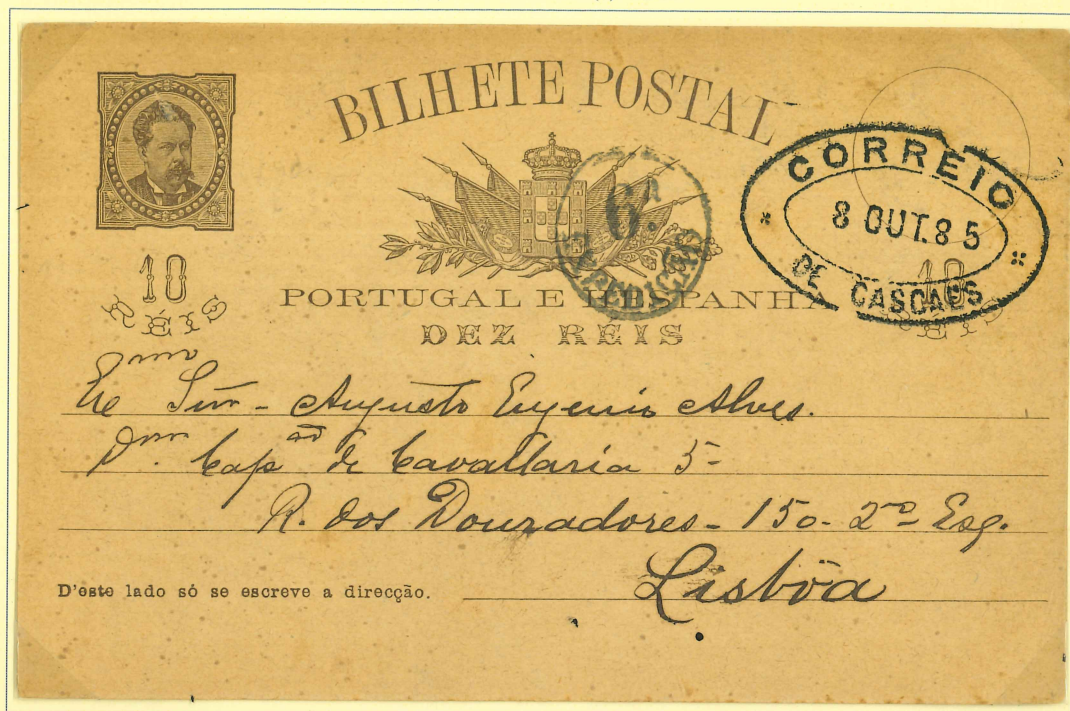 BILHETE POSTAL
CORREIO
8 OUT. 85
DE CASCAES
6ª
EXPEDIÇÃO
10
RÉIS
10
RÉIS
PORTUGAL E HESPANHA
DEZ RÉIS
Exmo Snr - Augusto Eugenio Alves.
Dmo. Capão de Cavallaria 5-
R. dos Douradores - 150 - 2º Esq.
Lisbôa
D'este lado só se escreve a direcção.